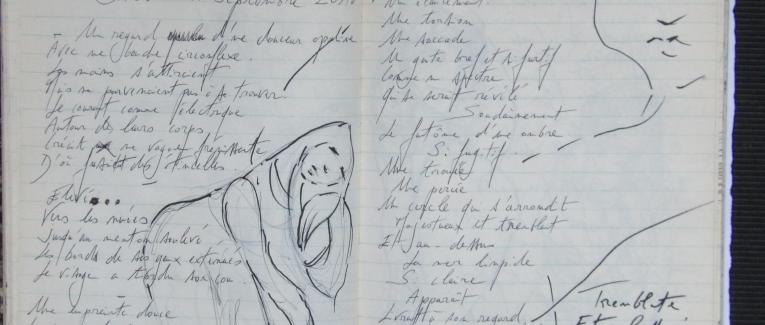 Septembre
- Un regard d'une douceur opaline
Avec une bouche circonflexe.
Les mains s'attiraient
Mais ne parvenaient pas à se trouver.
Le courant comme électrique
Autour des leurs corps,
Créait une vague frémissante
D'où des étincelles.
Elevé...
Vers les nuées
Jusqu'au menton soulevé
Les bords de ses yeux exténués
Le visage a tordu son cou.
Une empreinte douce
Une torsion
Une saccade
Un geste bref et si furtif
Comme un spectre
Qui se serait révélé
Soudainement
Le fantôme d'une ombre
Si fugitif.
Une trouée
Une percée
Un cercle qui s'arrondit
Majestueux et tremblant
Et au-dessus
La mer limpide
Si claire
Apparaît
à son regard
Tremblante
Et